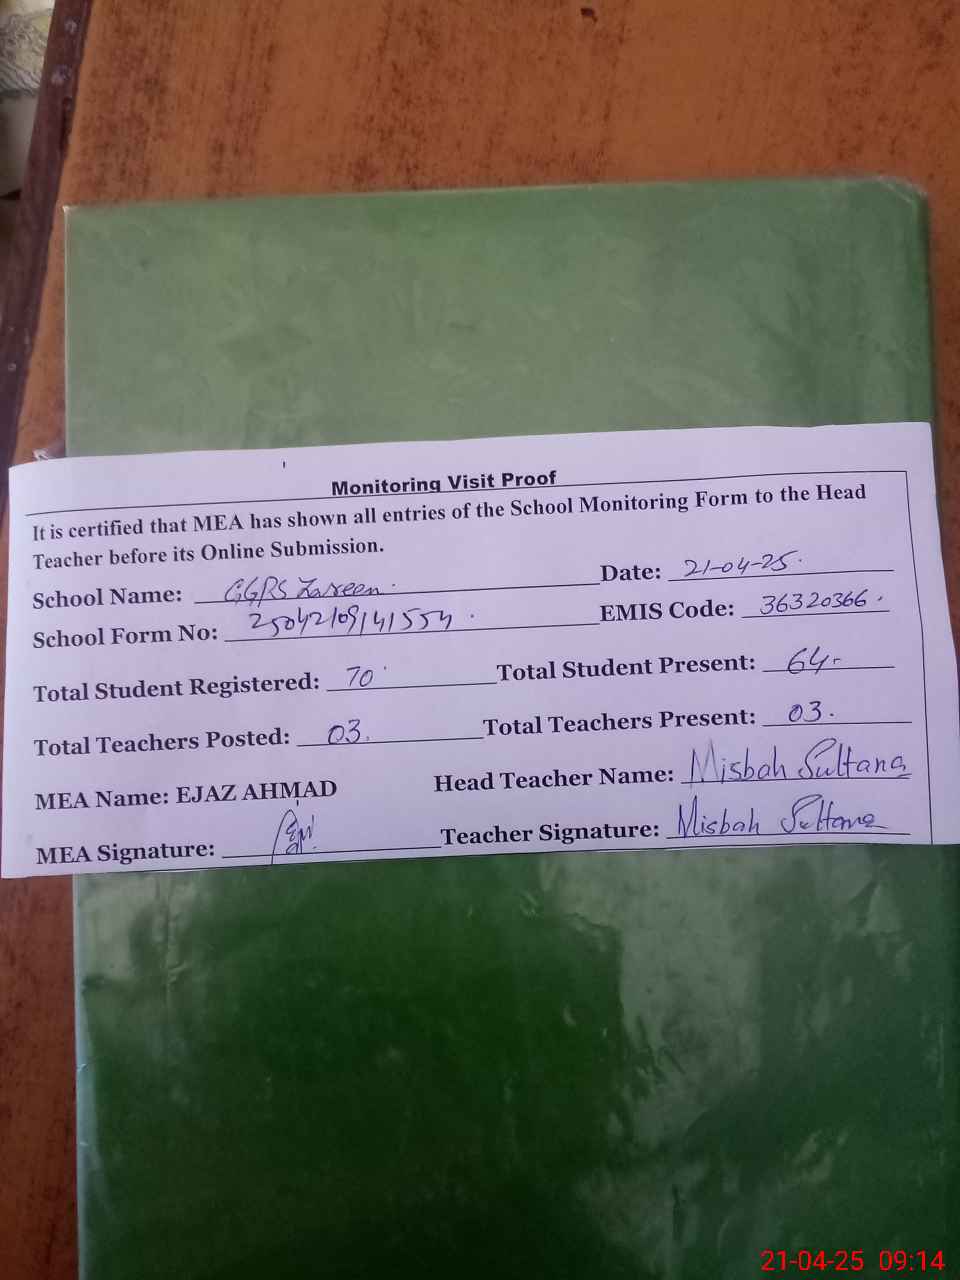 Monitoring Visit Proof
It is certified that MEA has shown all entries of the School Monitoring Form to the Head
Teacher before its Online Submission.
School Name: GGPS Zareen. Date: 21-04-25.
School Form No: 25042109141554. EMIS Code: 36320366.
Total Student Registered: 70 Total Student Present: 64-
Total Teachers Posted: 03. Total Teachers Present: 03.
MEA Name: EJAZ AHMAD Head Teacher Name: Misbah Sultana
MEA Signature: Teacher Signature: Misbah Sultana
21-04-25 09:14